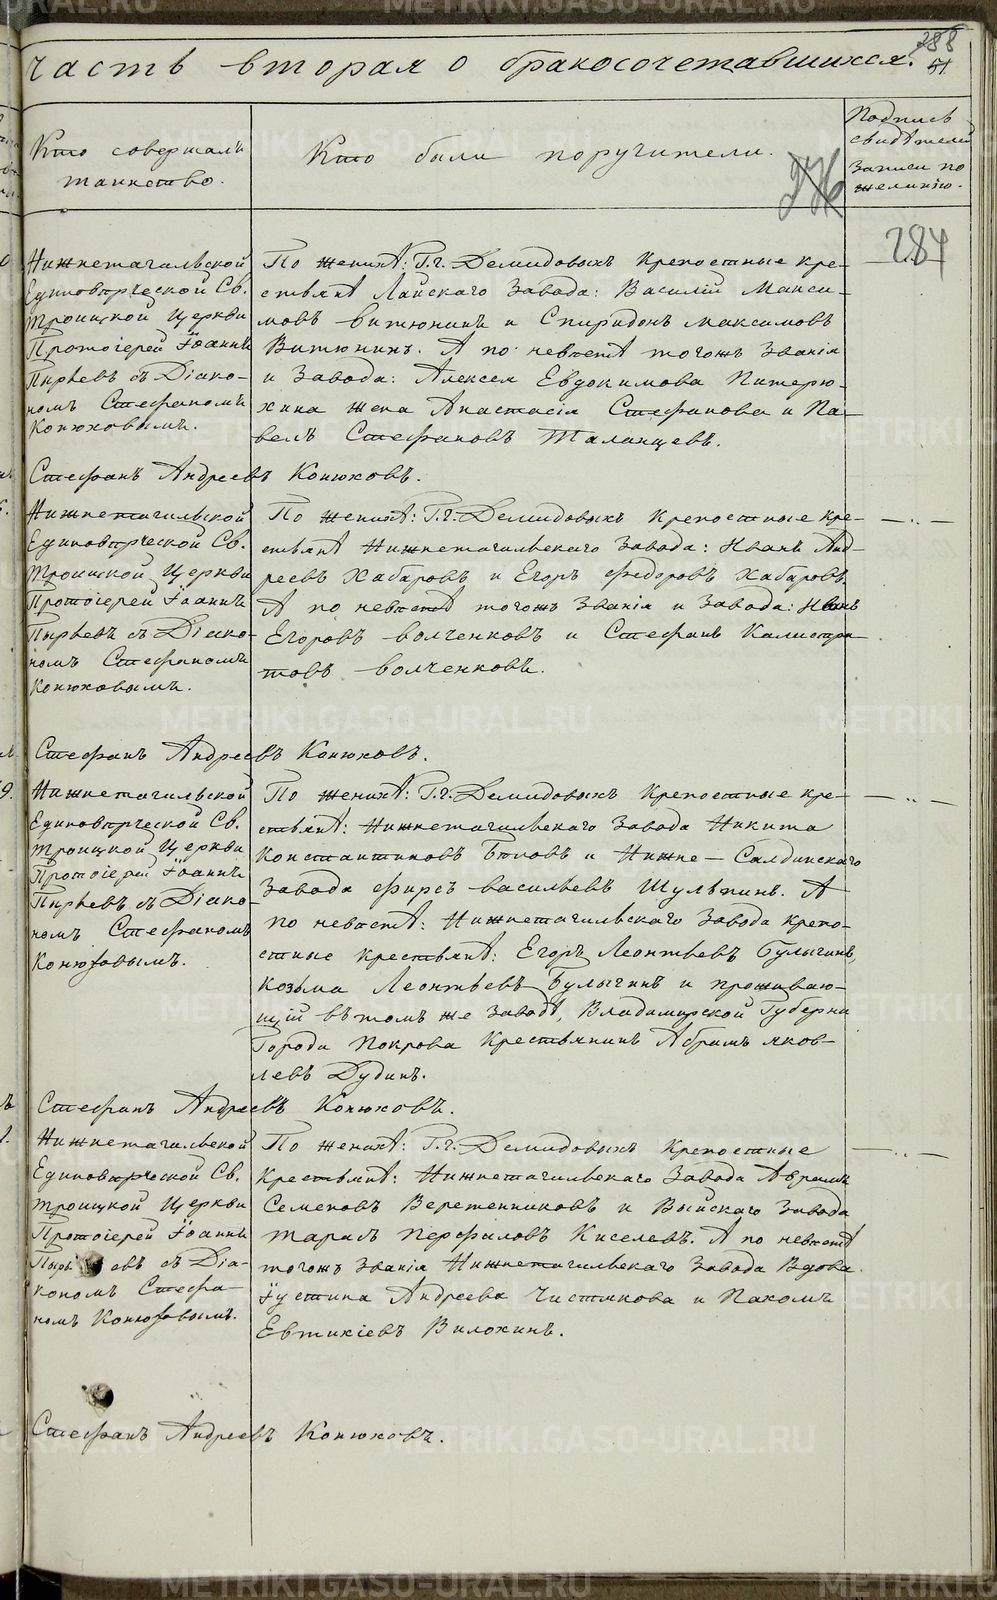 288
51
часть вторая о бракосочетавшихся.
Кто совершалъ
таинство.
Кто были поручители.
Подпись
свидѣтелей
записи по
желанію.
284
Нижнетагильской
Единовѣрческой Св.
Троицкой Церкви
Протоіерей Іоаннъ
Пырьевъ съ Діако-
номъ Стефаномъ
Конюховымъ.
По женихѣ: Г.г. Демидовыхъ Крепостные кре-
стьянѣ Лайскаго Завода: Василій Макси-
мовъ Витюнинъ и Спиридонъ Максимовъ
Витюнинъ. А по невѣстѣ тогожъ званія
и Завода: Алексея Евдокимова Питерю-
хина жена Анастасія Стефанова и Па-
велъ Стефановъ Таланцевъ.
Стефанъ Андреевъ Конюховъ.
Нижнетагильской
Единовѣрческой Св.
Троицкой Церкви
Протоіерей Іоаннъ
Пырьевъ съ Діако-
номъ Стефаномъ
Конюховымъ.
По женихѣ: Г.г. Демидовыхъ Крепостные кре-
стьянѣ Нижнетагильскаго Завода: Иванъ Анд-
реевъ Хабаровъ и Егоръ Федоровъ Хабаровъ.
А по невѣстѣ тогожъ званія и Завода: Иванъ
Егоровъ Волченковъ и Стефанъ Калистра-
товъ Волченковъ.
Стефанъ Андреевъ Конюховъ.
Нижнетагильской
Единовѣрческой Св.
Троицкой Церкви
Протоіерей Іоаннъ
Пырьевъ съ Діако-
номъ Стефаномъ
Конюховымъ.
По женихѣ: Г.г. Демидовыхъ Крепостные кре-
стьянѣ: Нижнетагильскаго Завода Никита
Константиновъ Бѣловъ и Нижне-Салдинскаго
Завода Фирсъ Васильевъ Шульпинъ. А
по невѣстѣ: Нижнетагильскаго Завода крепо-
стные крестьянѣ: Егоръ Леонтьевъ Булыгинъ,
Козьма Леонтьевъ Булыгинъ и проживаю-
щій въ томъ же Заводѣ, Владимирской Губерни
Города Покрова Крестьянинъ Абрамъ Яков-
левъ Дудинъ.
Стефанъ Андреевъ Конюховъ.
Нижнетагильской
Единовѣрческой Св.
Троицкой Церкви
Протоіерей Іоаннъ
Пырьевъ съ Діа-
кономъ Стефа-
номъ Конюховымъ.
По женихѣ: Г.г. Демидовыхъ Крепостные
Крестьянѣ: Нижнетагильскаго Завода Аврамъ
Семеновъ Веретенниковъ и Выйскаго Завода
Тарасъ Перфиловъ Киселевъ. А по невѣстѣ
тогожъ званія Нижнетагильскаго Завода Вдова
Іустина Андреева Чистякова и Пахомъ
Евтихіевъ Вилохинъ.
Стефанъ Андреевъ Конюховъ.
METRIKI.GASO-URAL.RU